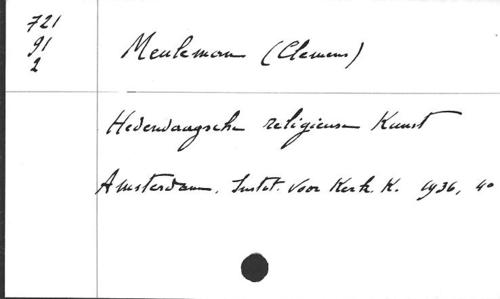 721
91
2
Meuleman (Clemens)
Hedendaagsche religieuse Kunst
Amsterdam, Instit. voor Kerk. K. 1936, 4o